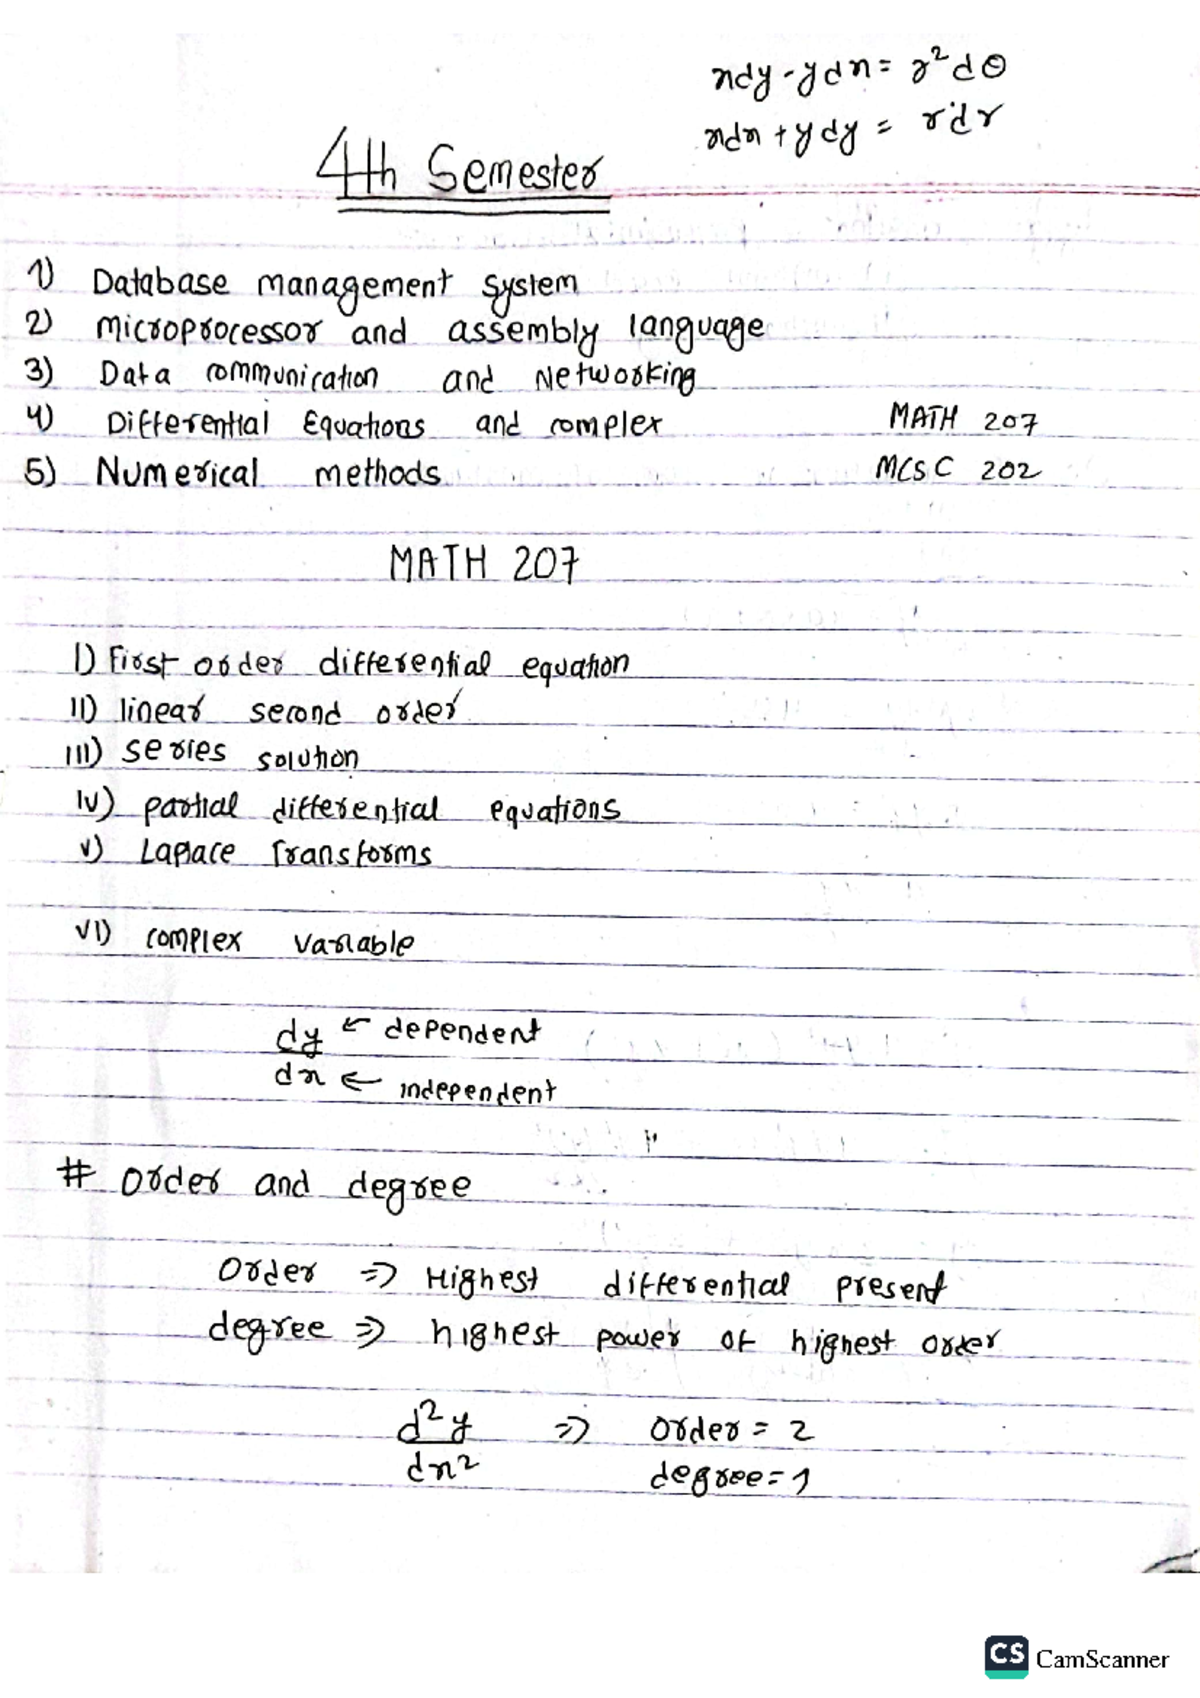 xdy - ydx = r²dθ
xdx + ydy = rdr
4th Semester
1) Database management system
2) microprocessor and assembly language
3) Data communication and Networking
4) Differential Equations and complex MATH 207
5) Numerical methods MCSC 202
MATH 207
I) First order differential equation
II) linear second order
III) series solution
IV) partial differential equations
V) Laplace Transforms
VI) complex variable
dy ← dependent
dx ← independent
# order and degree
Order ⇒ Highest differential present
degree ⇒ highest power of highest order
d²y ⇒ order = 2
dx² degree = 1
CS CamScanner